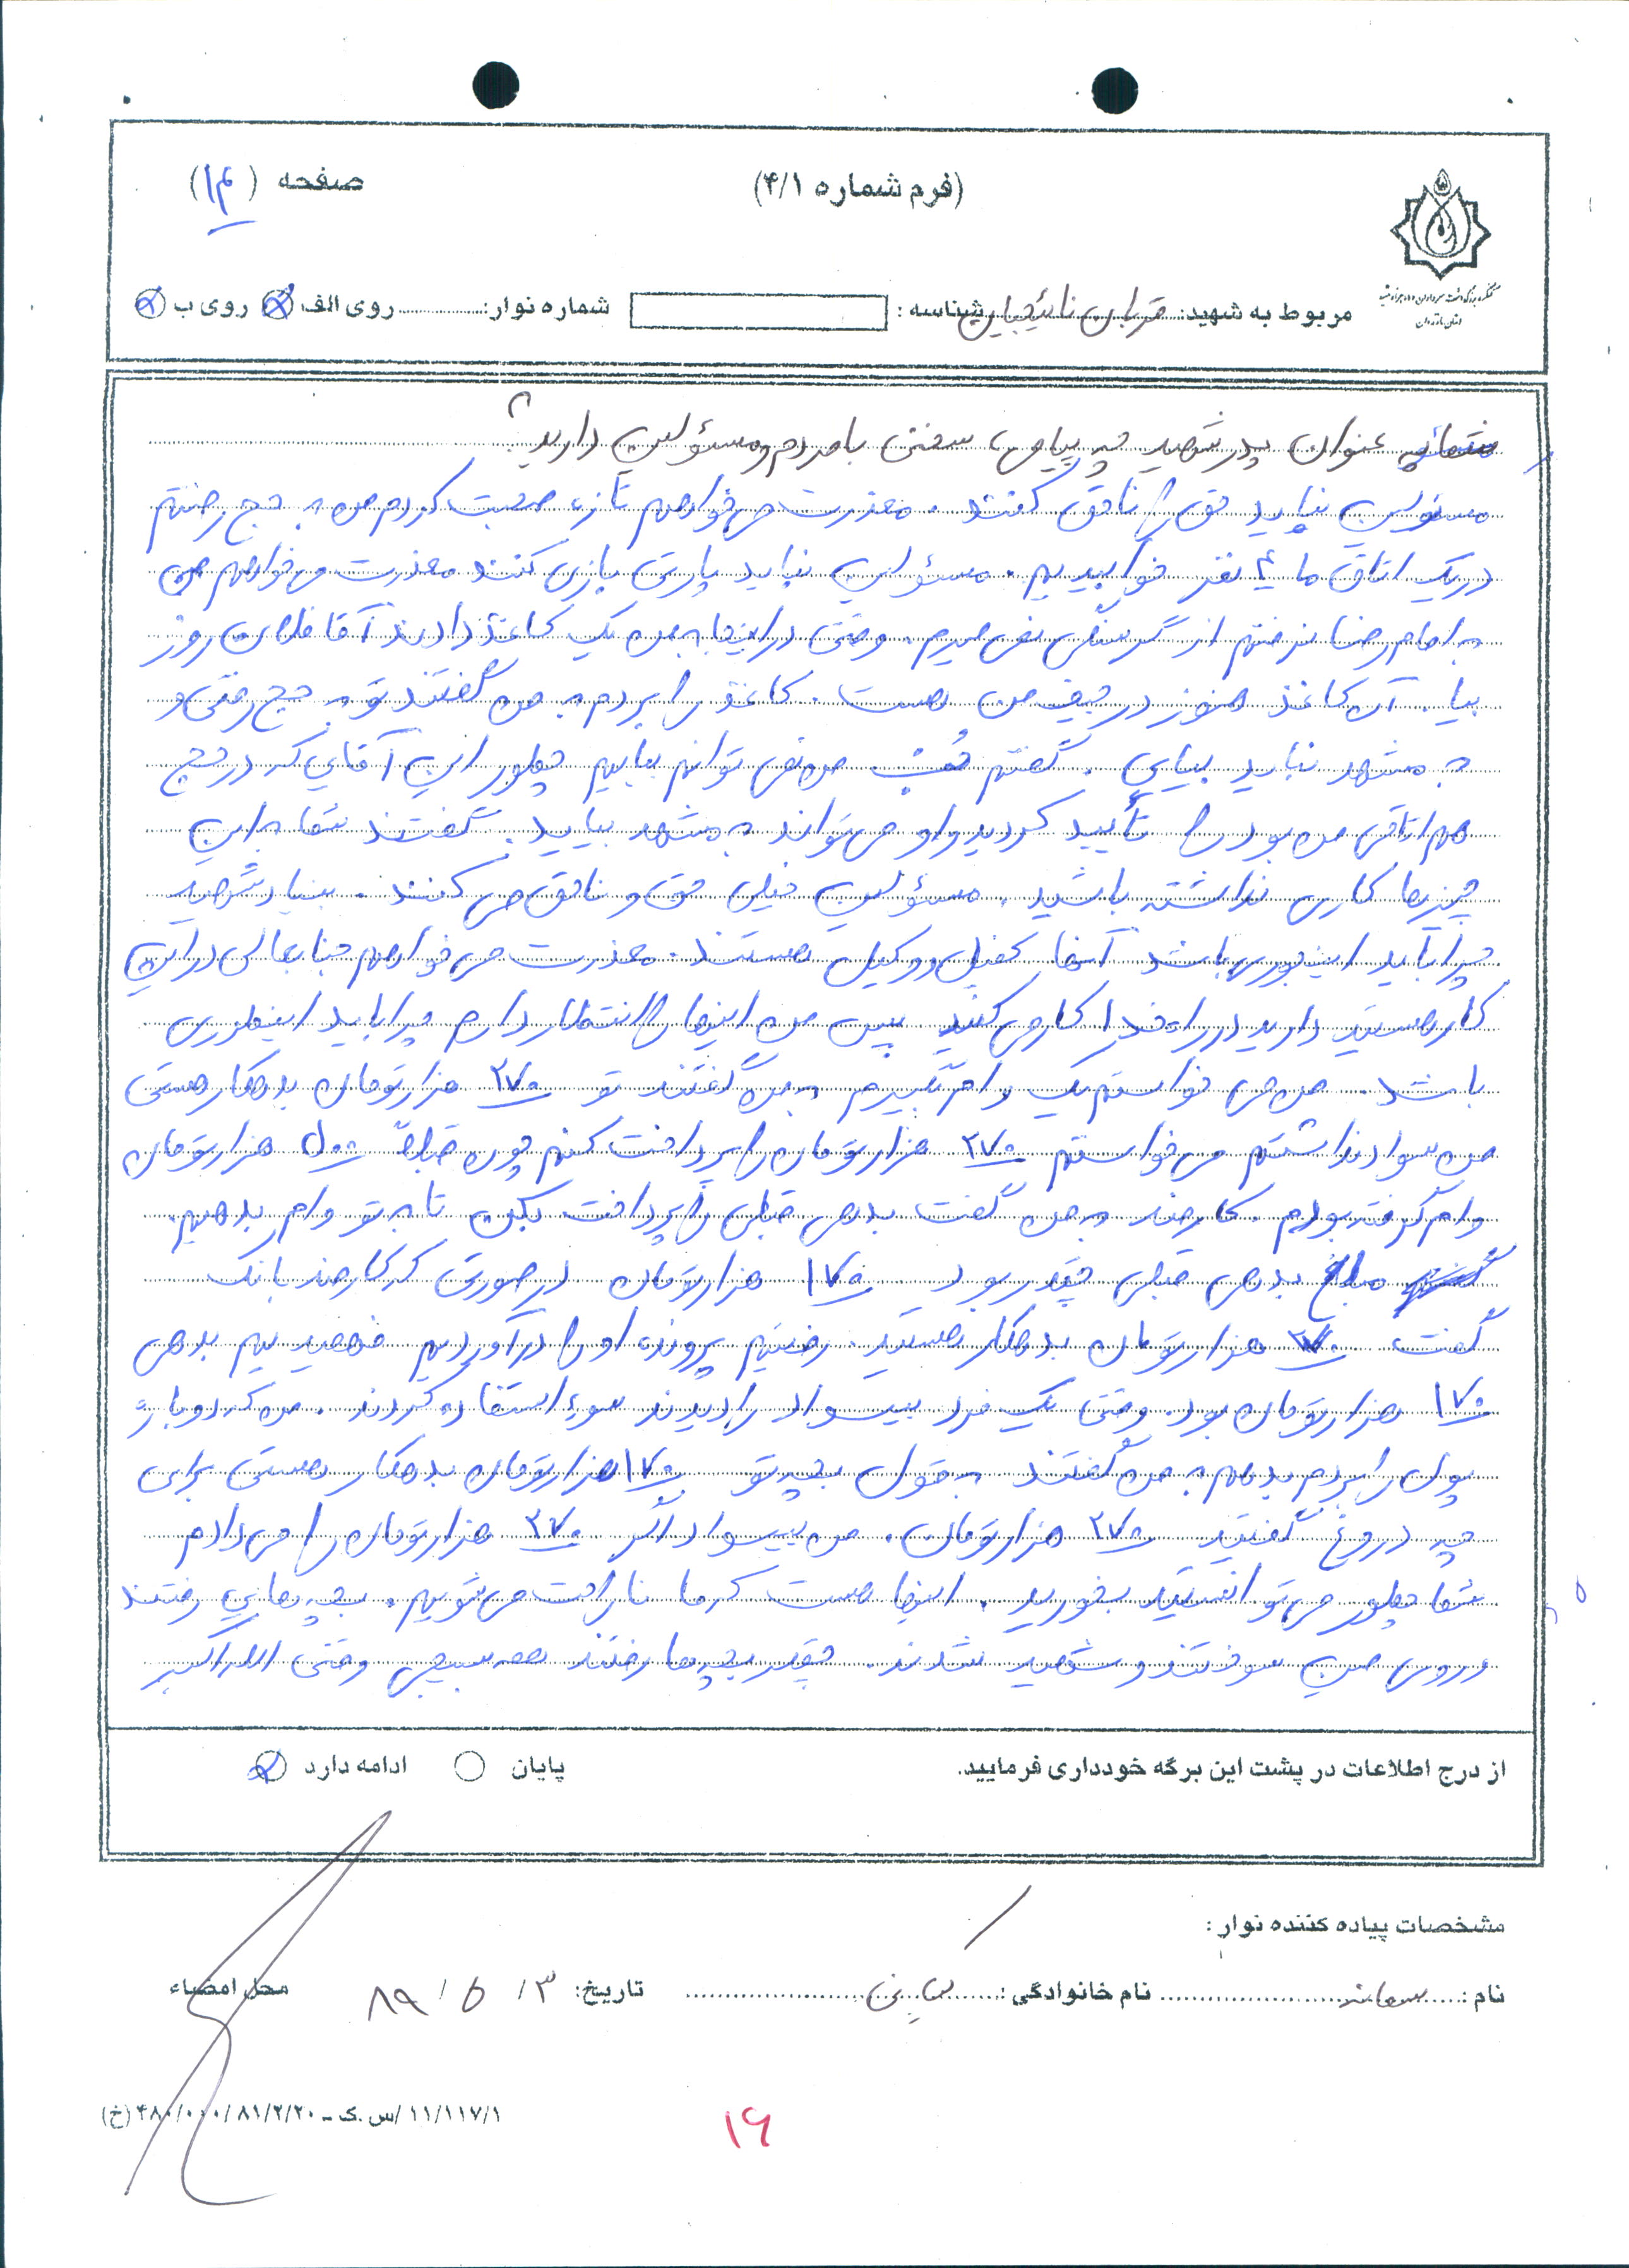 (فرم شماره ۴/۱)
صفحه (۱۴)
کنگره بزرگداشت سرداران و ده هزار شهید
استان مازندران
مربوط به شهید: قربان نائیجیان شناسه: شماره نوار: روی الف روی ب
شما به عنوان پدر شهید چه پیامی، سخنی با مردم و مسؤلین دارید؟
مسئولین نباید حق را ناحق کنند. معذرت می‌خواهم تازه صحبت کردم من به حج رفتم
در یک اتاق ما ۴ نفر خوابیدیم. مسؤلین نباید پارتی بازی کنند معذرت می‌خواهم من
به امام رضا نرفتم از گرسنگی نمی‌میرم. وقتی در اینجا به من یک کاغذ دادند آقا فلان روز
بیا. آن کاغذ هنوز در جیف من هست. کاغذ را بردم به من گفتند تو به حج رفتی و
به مشهد نباید بیایی. گفتم خُب من نمی توانم بیایم چطور این آقای که در حج
هم اتاقی من بود را تأیید کردید و او می‌تواند به مشهد بیاید. گفتند شما به این
چیزها کاری نداشته باشید. مسؤلین خیلی حق و ناحق می کنند. بنیاد شهید
چرا باید اینجوری باشد آنها کفیل و وکیل هستند. معذرت می‌خواهم جنابعالی در این
کار هستید دارید در راه خدا کار می کنید پس من اینها را انتظار دارم چرا باید اینطوری
باشد. من می خواستم یک وام بگیرم به من گفتند تو ۲۷۰ هزار تومان بدهکار هستی
من سواد نداشتم می‌خواستم ۲۷۰ هزار تومان را پرداخت کنم چون قبلاً ۵۰۰ هزار تومان
وام گرفته بودم. کارمند به من گفت بدهی قبلی را پرداخت بکن تا به تو وام بدهیم.
مبلغ بدهی قبلی چقدر بود ۱۷۰ هزار تومان در صورتی که کارمند بانک
گفت ۲۷۰ هزار تومان بدهکار هستید. رفتیم پرونده او را درآوردیم فهمیدیم بدهی
۱۷۰ هزار تومان بود. وقتی یک فرد بیسواد را دیدند سوء استفاده کردند. من که دوباره
پول را بردم بدهم به من گفتند به قول بچه تو ۱۷۰ هزار تومان بدهکار هستی برای
چه دروغ گفتید ۲۷۰ هزار تومان. من بیسواد اگر ۲۷۰ هزار تومان را می‌دادم
شما چطور می‌توانستید بخورید. اینها هست که ما ناراحت می‌شویم. بچه‌هایی رفتند
و روی مین سوختند و شهید شدند. چقدر بچه‌ها رفتند همه بسیجی وقتی الله اکبر
از درج اطلاعات در پشت این برگه خودداری فرمایید. پایان ادامه دارد
مشخصات پیاده کننده نوار:
نام: سمانه نام خانوادگی: تاریخ: ۸۹/۵/۳ محل امضاء
۱۱/۱۱۷/۱/س.ک - ۸۱/۲/۲۰/۰۰۰/۴۸ (خ)
۱۶